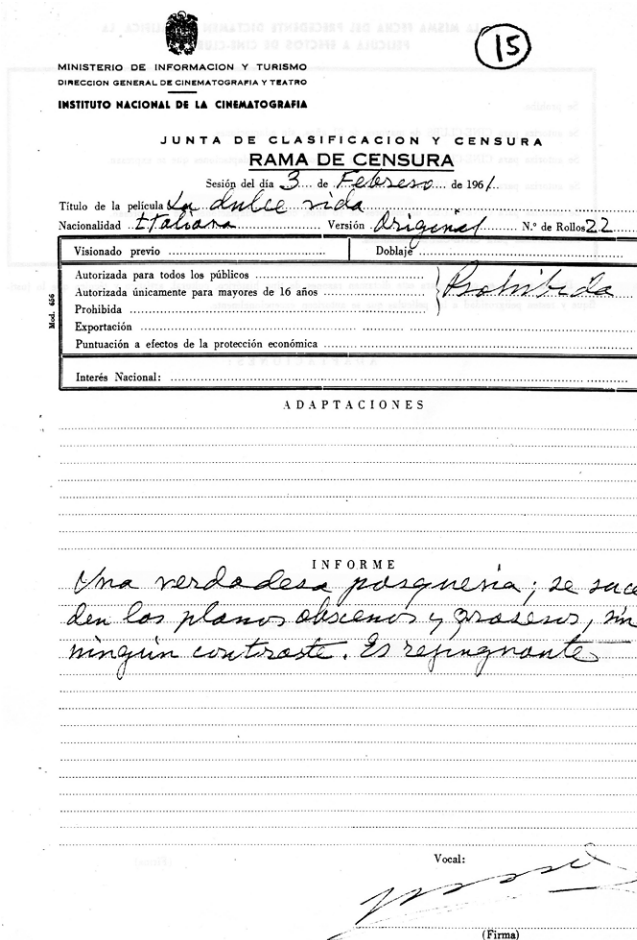 15
MINISTERIO DE INFORMACION Y TURISMO
DIRECCION GENERAL DE CINEMATOGRAFIA Y TEATRO
INSTITUTO NACIONAL DE LA CINEMATOGRAFIA
JUNTA DE CLASIFICACION Y CENSURA
RAMA DE CENSURA
Sesión del día 3 de Febrero de 1961
Título de la película La dulce vida
Nacionalidad Italiana Versión Original N.º de Rollos 22
Visionado previo Doblaje
Autorizada para todos los públicos
Autorizada únicamente para mayores de 16 años Prohibida
Prohibida
Exportación
Puntuación a efectos de la protección económica
Interés Nacional:
Mod. 656
ADAPTACIONES
INFORME
Una verdadera porquería; se suce
den los planos obscenos y groseros, sin
ningún contraste. Es repugnante
Vocal:
(Firma)